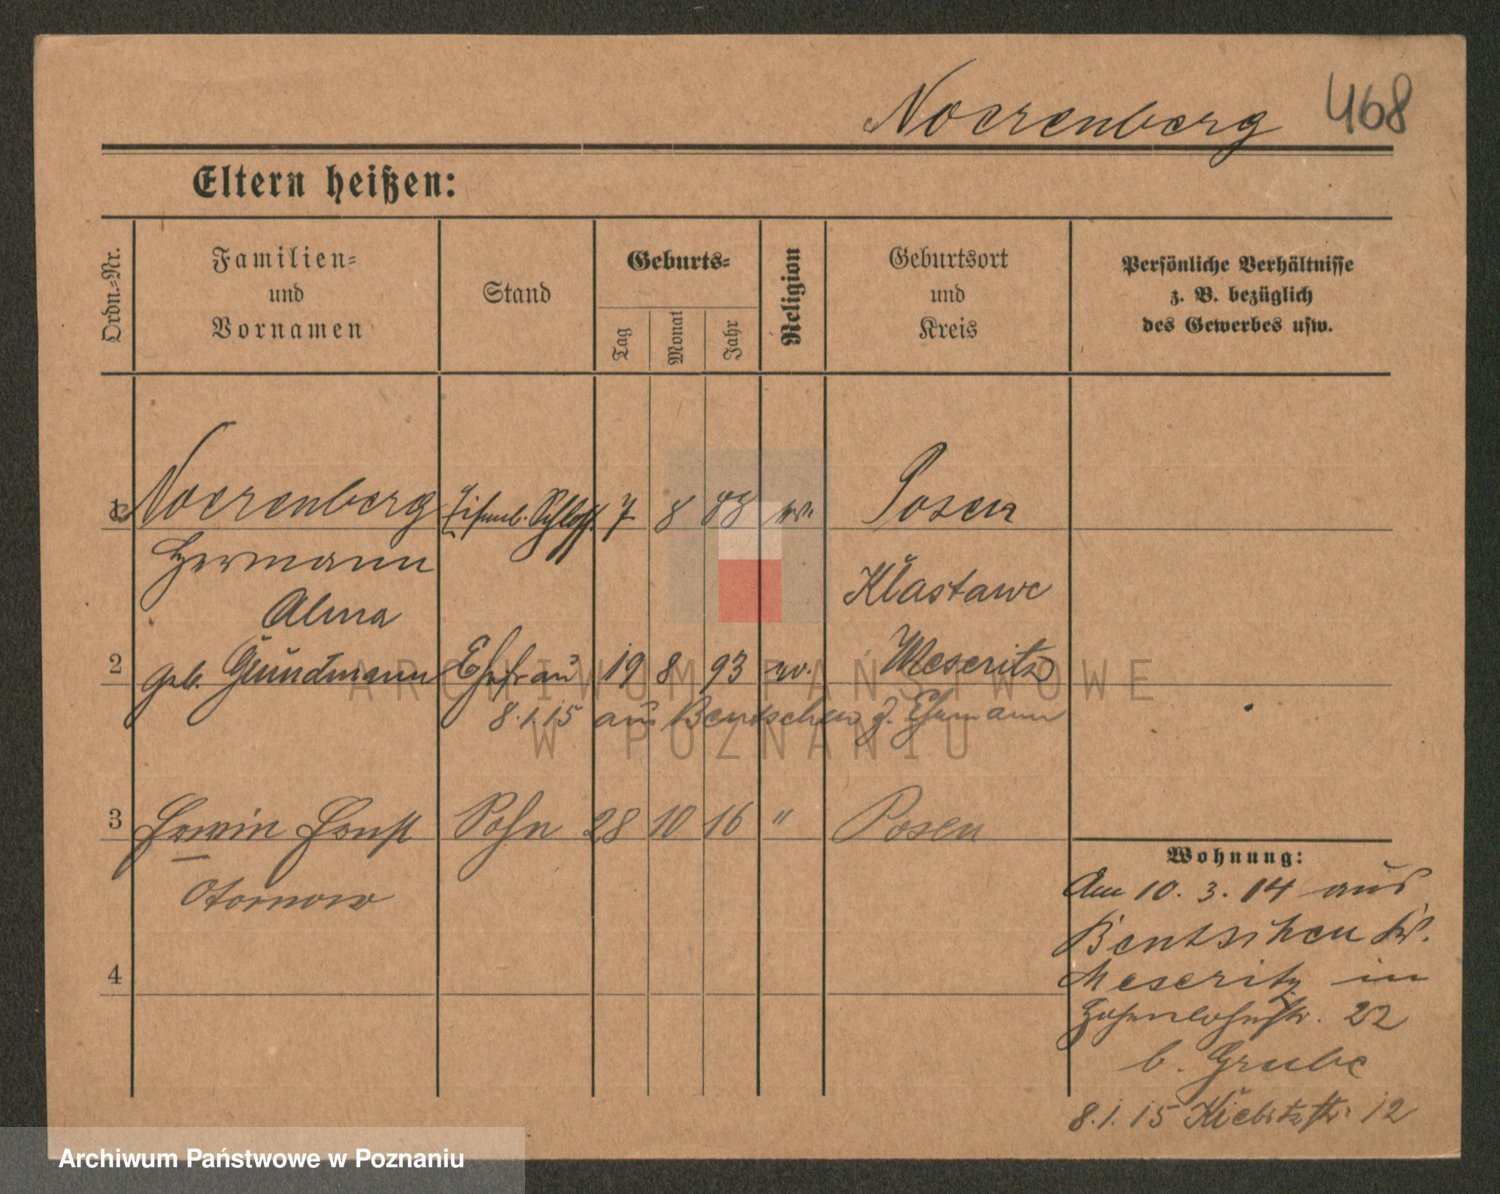 Noerenberg 468
Eltern heißen:
Ordn.-Nr.
Familien-
und
Vornamen
Stand
Geburts-
Tag
Monat
Jahr
Religion
Geburtsort
und
Kreis
Persönliche Verhältnisse
z. B. bezüglich
des Gewerbes usw.
1 Noerenberg Eisenb. Schloss. 7 8 83 ev. Posen
Hermann
Alma Klastawe
2 geb. Gundmann Ehefrau 19 8 93 ev. Meseritz
8.1.15 aus Bentschen z. Ehemann
3 Erwin Ernst Sohn 28 10 16 " Posen
4
Wohnung:
Am 10. 3. 14 aus
Bentschen Kr.
Meseritz in
Hohenlohestr. 22
b. Grube
8.1.15 Kiebitzstr. 12
ARCHIWUM PAŃSTWOWE
W POZNANIU
Archiwum Państwowe w Poznaniu